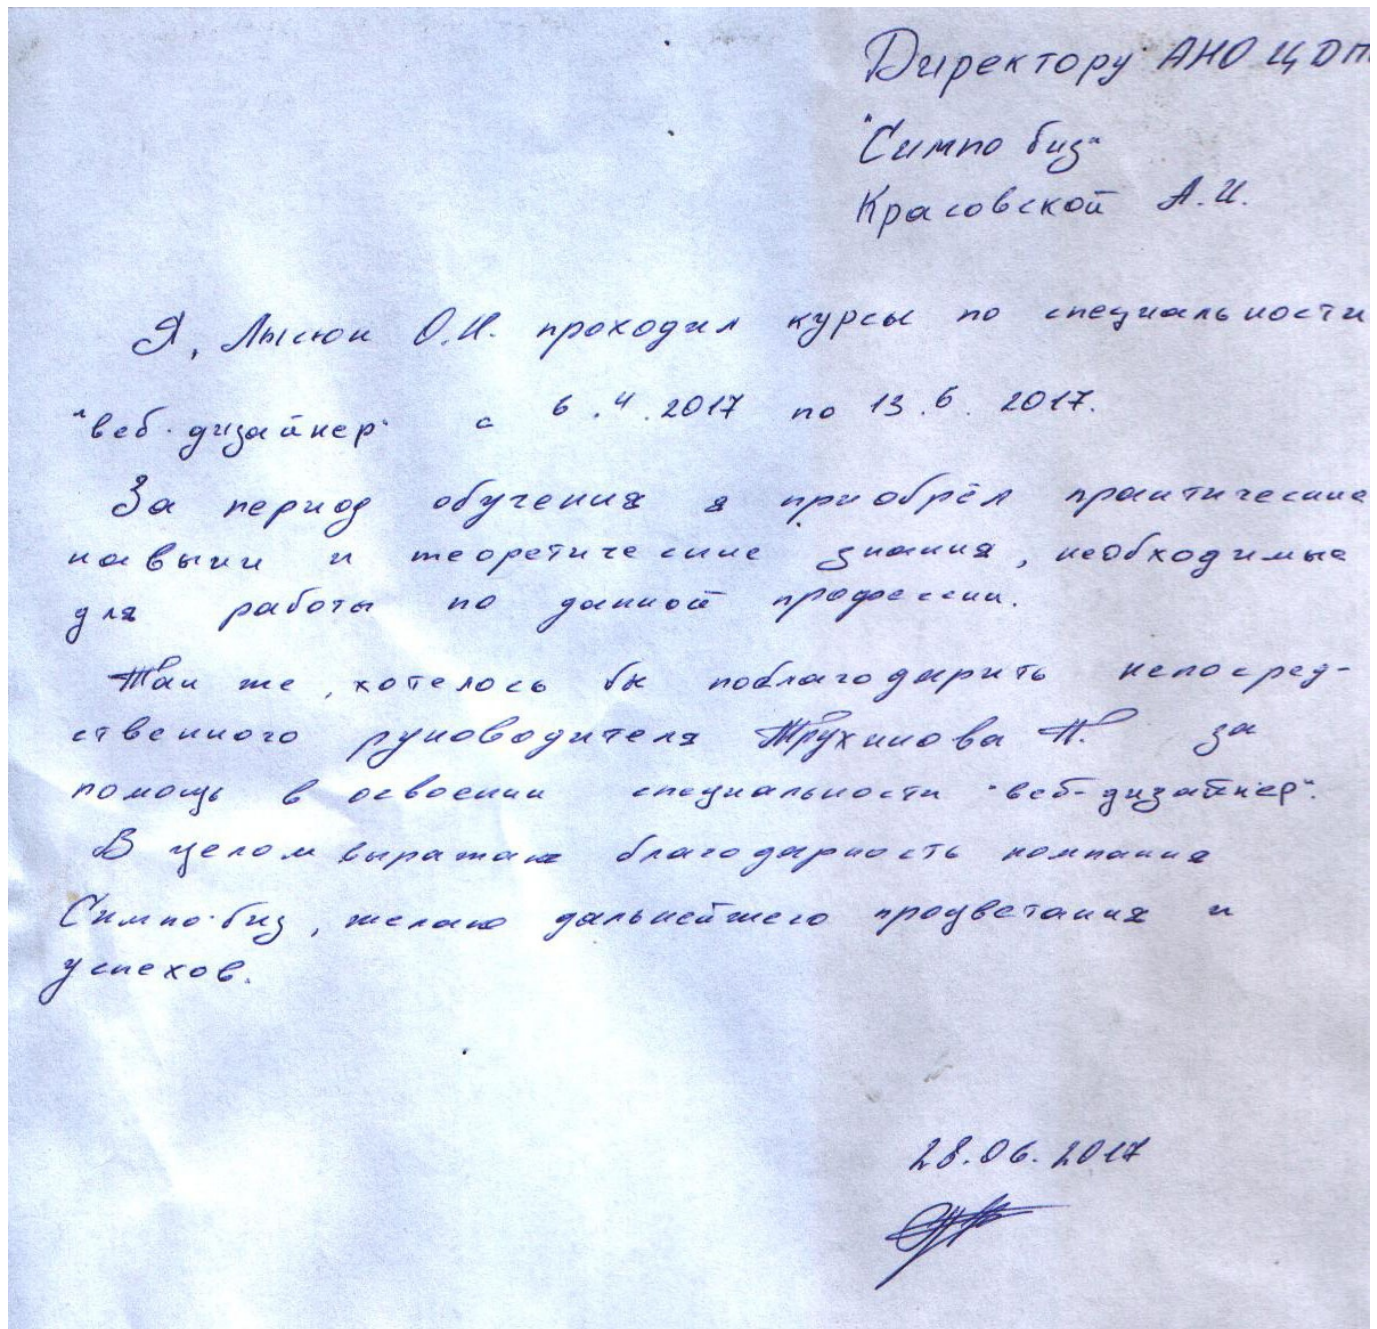 Директору АНО ЦДП
"Симпо биз"
Красовской А.И.
Я, Лысюк О.И. проходил курсы по специальности
"веб-дизайнер" с 6.4.2017 по 13.6.2017.
За период обучения я приобрёл практические
навыки и теоретические знания, необходимые
для работы по данной профессии.
Так же, хотелось бы поблагодарить непосред-
ственного руководителя Трухинова П. за
помощь в освоении специальности "веб-дизайнер".
В целом выражаю благодарность компания
Симпо-биз, желаю дальнейшего процветания и
успехов.
28.06.2017